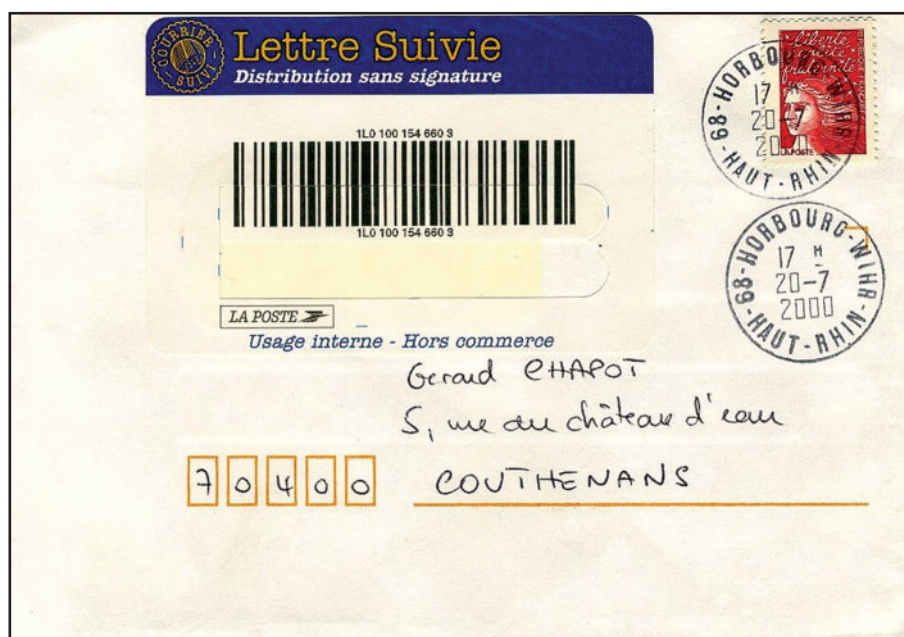 COURRIER SUIVI
Lettre Suivie
Distribution sans signature
1L0 100 154 660 3
1L0 100 154 660 3
LA POSTE
Usage interne - Hors commerce
liberté
égalité
fraternité
LA POSTE
68-HORBOURG-WIHR
17 H
20-7
2000
HAUT-RHIN
68-HORBOURG-WIHR
17 H
20-7
2000
HAUT-RHIN
Gerard CHAPOT
5, rue du château d'eau
70400 COUTHENANS